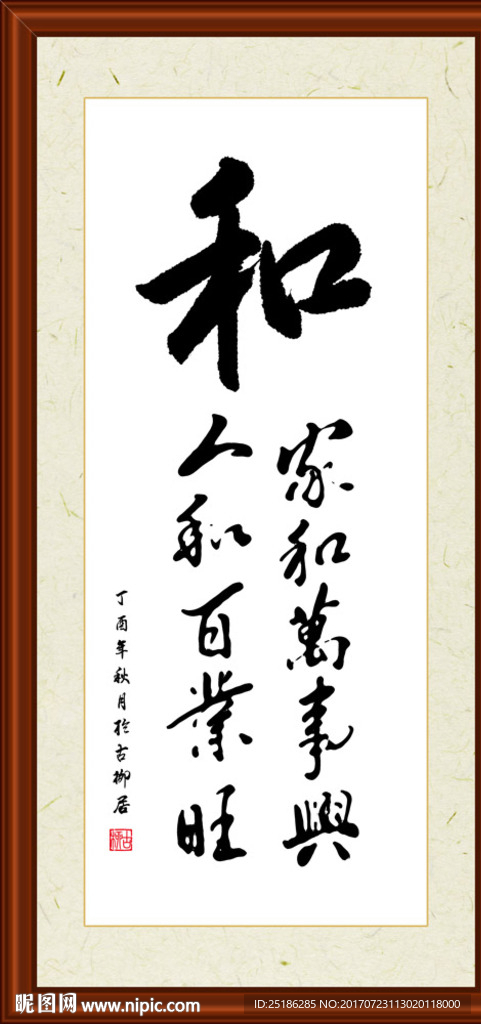 和
家和萬事興
人和百業旺
丁酉年秋月於古柳居
昵图网 www.nipic.com
ID:25186285 NO:20170723113020118000